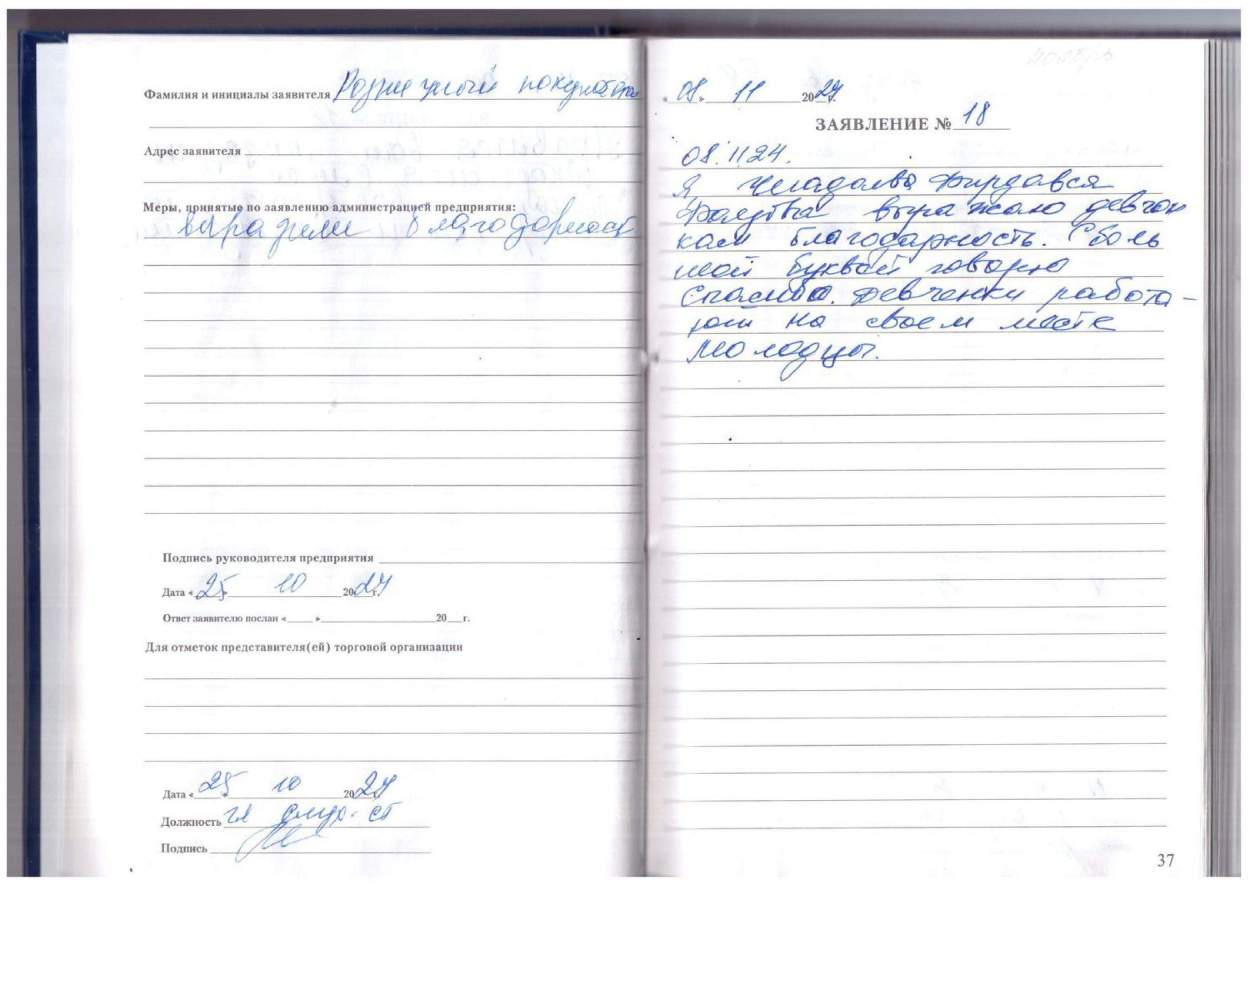 Фамилия и инициалы заявителя Розничный покупатель
Адрес заявителя
Меры, принятые по заявлению администрацией предприятия:
выразили благодарность
Подпись руководителя предприятия
Дата «25» 10 2024 г.
Ответ заявителю послан « » 20 г.
Для отметок представителя(ей) торговой организации
Дата «25» 10 2024
Должность
Подпись
ноябрь
«08» 11 2024 г.
ЗАЯВЛЕНИЕ № 18
08.11.24.
Я
выражаю девчон
кам благодарность. С боль
шой буквой говорю
Спасибо. Девченки работа-
ют на своем месте
Молодцы.
37